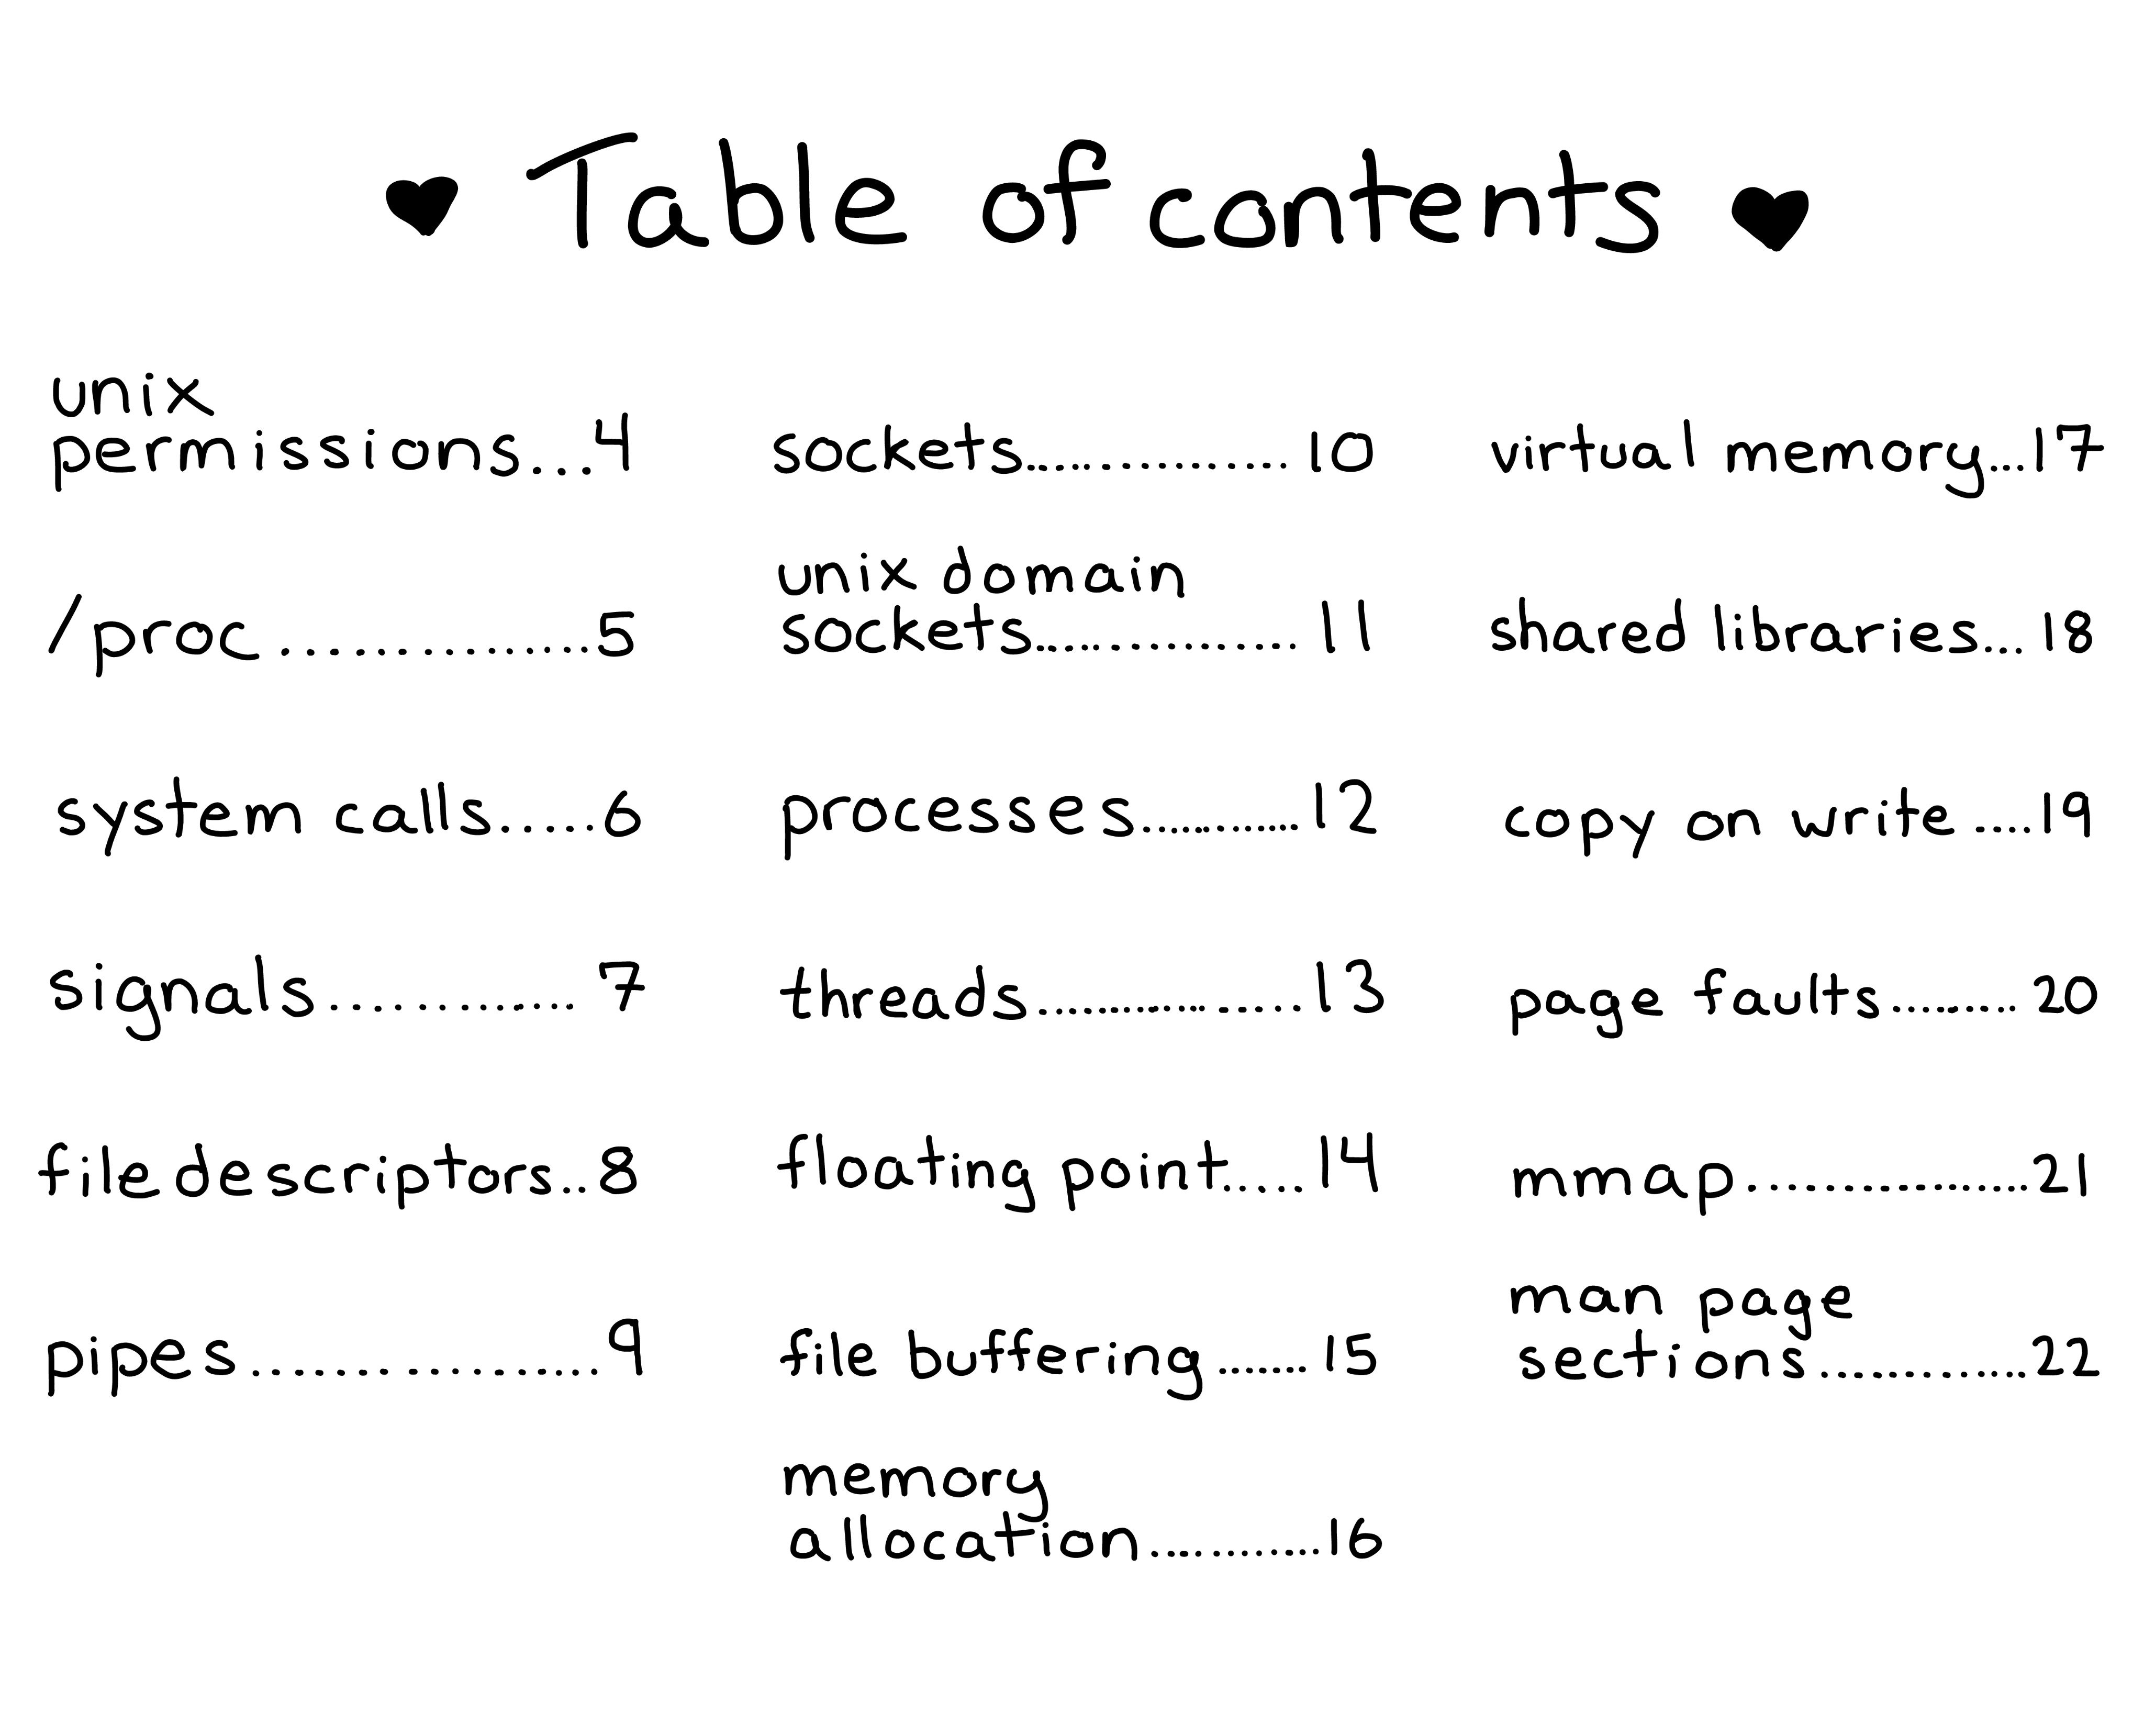 ♥ Table of contents ♥
unix
permissions...4
/proc.................5
system calls.....6
signals.............7
file descriptors..8
pipes...................9
sockets.................10
unix domain
sockets.................11
processes.............12
threads..................13
floating point.....14
file buffering.......15
memory
allocation.............16
virtual memory...17
shared libraries...18
copy on write ....19
page faults.........20
mmap...................21
man page
sections..............22